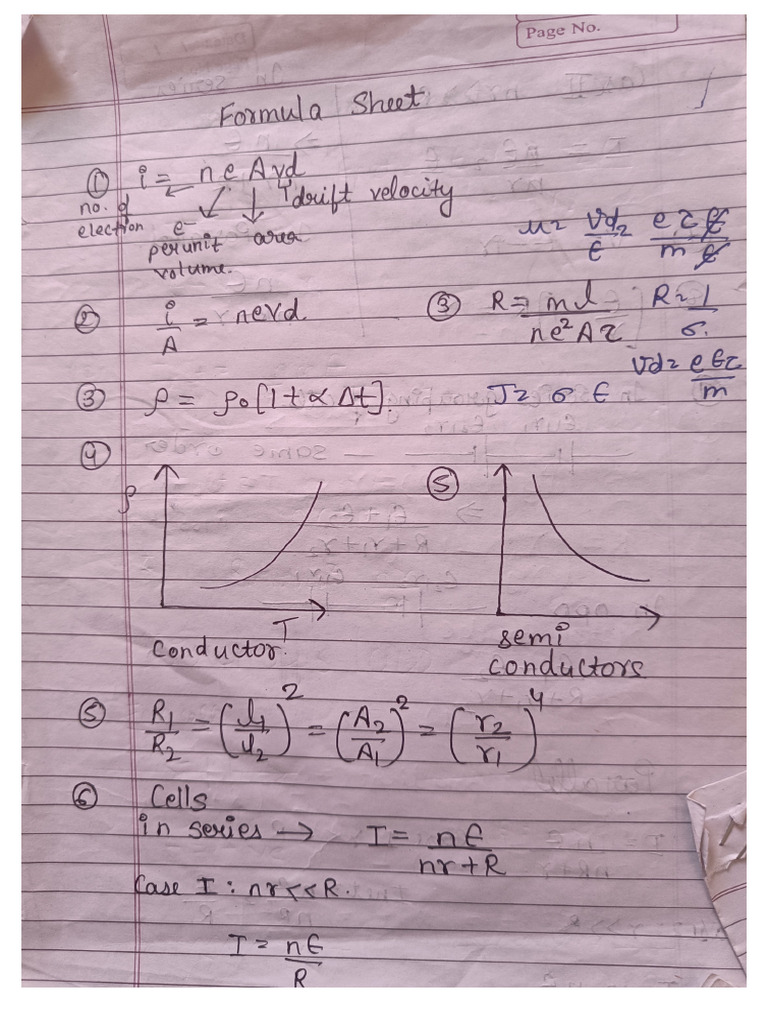 Page No.
Formula Sheet
① i = n e A vd
no. of election
e⁻ per unit volume.
area
drift velocity
μ = vd/E = e τ E/m E
② i/A = nevd
③ R = ml/ne²Aτ
R = 1/σ.
vd = e E τ/m
③ ρ = ρ₀ [1 + α Δt].
J = σ E
④
ρ
T
conductor
⑤
semi
conductors
⑤ R₁/R₂ = (l₁/l₂)² = (A₂/A₁)² = (r₂/r₁)⁴
⑥ Cells
in series → I = nE/nr+R
Case I : nr<<R.
I = nE/R